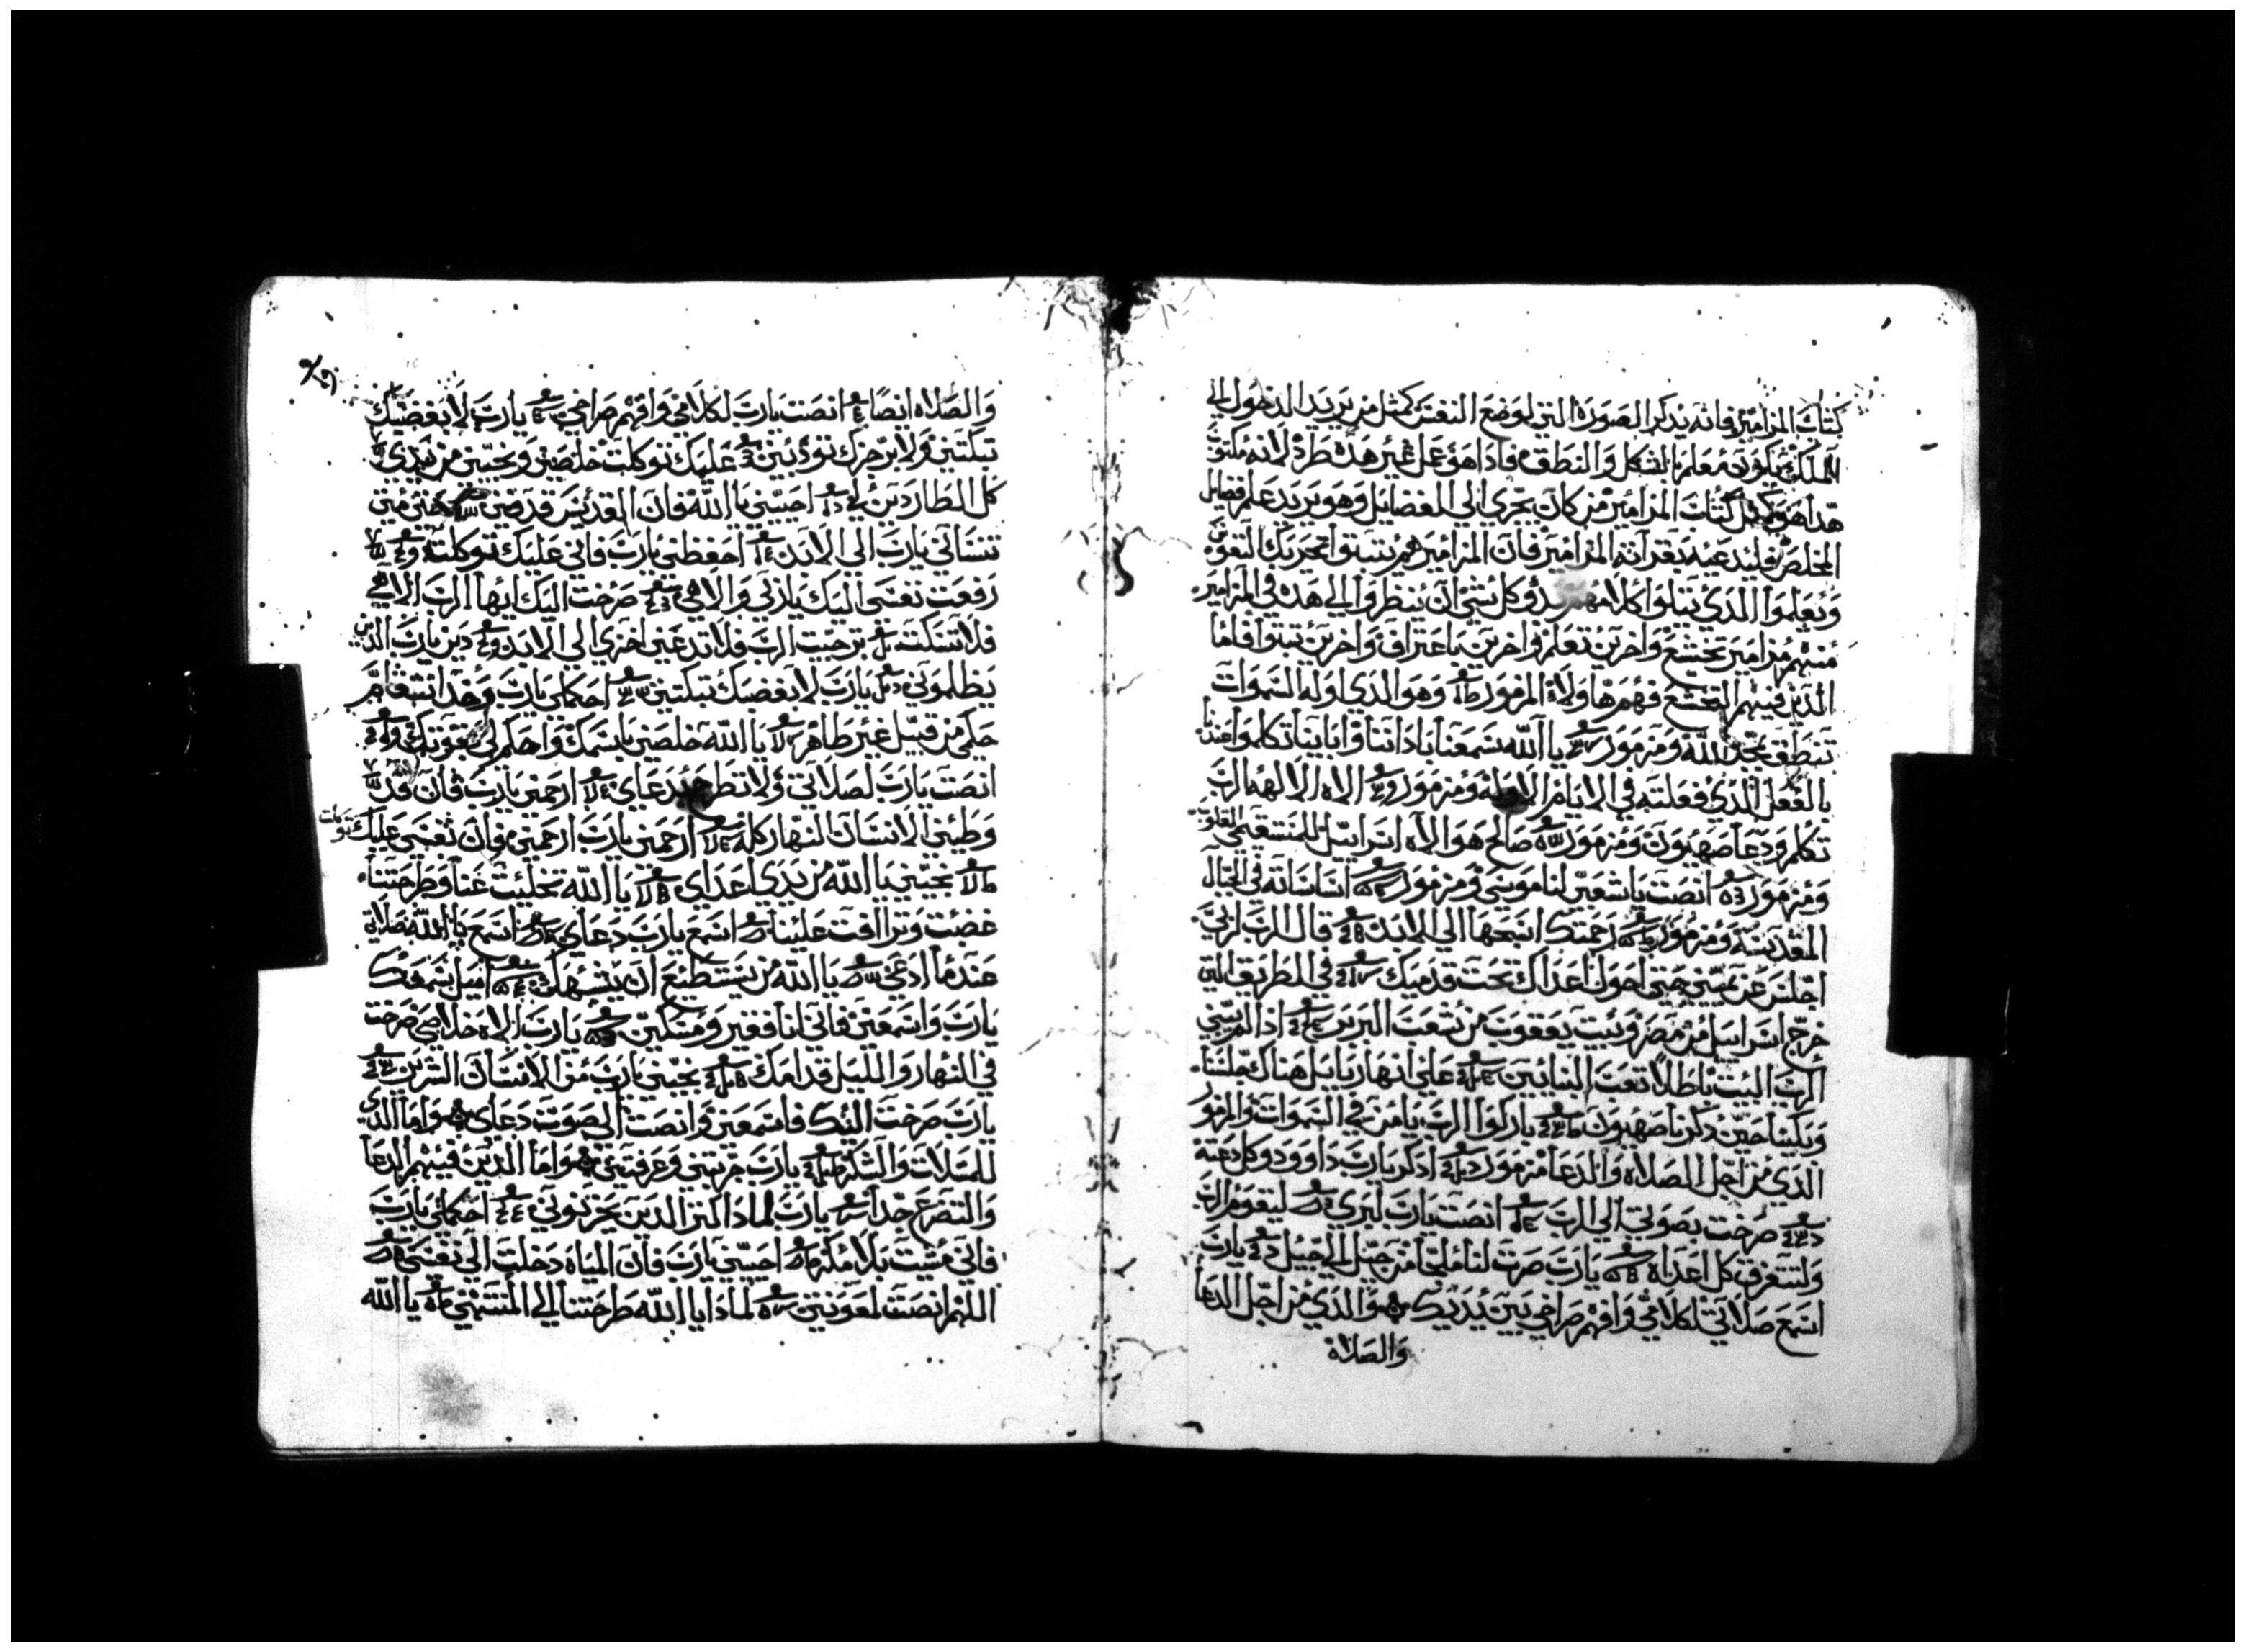 كتاب المزامير فانه يذكر الصورة التي لوضع النفس كمثل من يريد الدخول الي
الملك يكون معلم بالشكل والنطق فاذا هو عمل غير هذه طرد لانه مكتوب
هذا هو كمثل كتاب المزامير من كان يجري الي الفضايل وهو يريد علم فضايل
المخلص فليدعيه بقرآته المزامير فان المزامير هم يتبتوا تحريك النفوس
ويعلموا الذي يتلوا كلامهم وكل شي ان ينظروا الي هذه في المزامير
منهم مزامير تخشع واخرين تعلم واخرين باعتراف واخرين تبتوا فاما
الذين فيهم التخشع فهم هاولاء المزمور وهو الذي اوله السموات
تنطق بمجد الله ومزمور يا الله سمعنا باداننا واباينا تكلموا عندنا
بالفعل الذي فعلته في الايام الاوله ومزمور الاه الالهه الرب
تكلم ودعا صهيون ومزمور صالح هو الاه اسراييل للمستقيمي القلوب
ومزمور انصت يا شعبي لناموسي ومزمور اساساته في الجبال
المقدسه ومزمور رحمتك اسبحها الي الابد قال الرب لربي
اجلس عن يميني حتي احول اعداك تحت قدميك في الطريق التي
خرج اسراييل من مصر وبيت يعقوب من شعب البربر اذا لم يبني
الرب البيت باطلا تعب البنايين علي انهار بابل هناك جلسنا
وبكينا حين ذكرنا صهيون باركوا الرب يا من في السموات والمزمور
الذي من اجل الصلاه والدعا مزمور اذكر يارب داوود وكل دعته
صرخت بصوتي الي الرب انصت يارب لبري ليقوم الرب
ولتتفرق كل اعداه يارب صرت لنا ملجا من جيل الي جيل يارب
اسمع صلاتي لكلامي وافهم صراخي بين يديك والذي من اجل الدعا
والصلاه
والصلاه ايضا انصت يارب لكلامي وافهم صراخي يارب لا بغضبك
تبكتني ولا برجزك تودبني عليك توكلت خلصني ونجيني من يدي
كل الطاردين لي احييني يا الله فان القديس قد فني حتي متي
تنساني يارب الي الابد احفظني يارب فاني عليك توكلت
رفعت نفسي اليك يا ربي والاهي صرخت اليك ايها الرب الاهي
فلا تسكت ترجيت الرب فلا تدعني اخزي الي الابد دين يارب الذين
يظلموني يارب لا بغضبك تبكتني احكم لي يارب وخذ انتقام
حكمي من قبيل غير طاهر يا الله خلصني باسمك واحكم لي بقوتك
انصت يارب لصلاتي ولا تطرح دعاي ارحمني يارب فان قد
وطيني الانسان النهار كله ارحمني يارب ارحمني فان نفسي عليك توكلت
نجيني يا الله من يدي اعداي يا الله تخليت عنا وطرحتنا
غضبت وتراافت علينا اسمع يارب دعاي اسمع يا الله صلاتي
عندما ادعي يا الله من يستطيع ان يشبهك اميل سمعك
يارب واسمعني فاني انا فقير ومسكين يارب الاه خلاصي صرخت
في النهار والليل قدامك نجيني يارب من الانسان الشرير
يارب صرخت اليك فاسمعني وانصت الي صوت دعاي واما الذي
للسلات والشكر يارب جربتني وعرفتني واما الذين فيهم الدعا
والتضرع جدا يارب لماذا كتر الذين يحزنوني احكم لي يارب
فاني مشيت بلا مكر احييني يارب فان المياه دخلت الي نفسي
اللهم انصت لمعونتي لماذا يا الله طرحتنا الي المنتهي يا الله